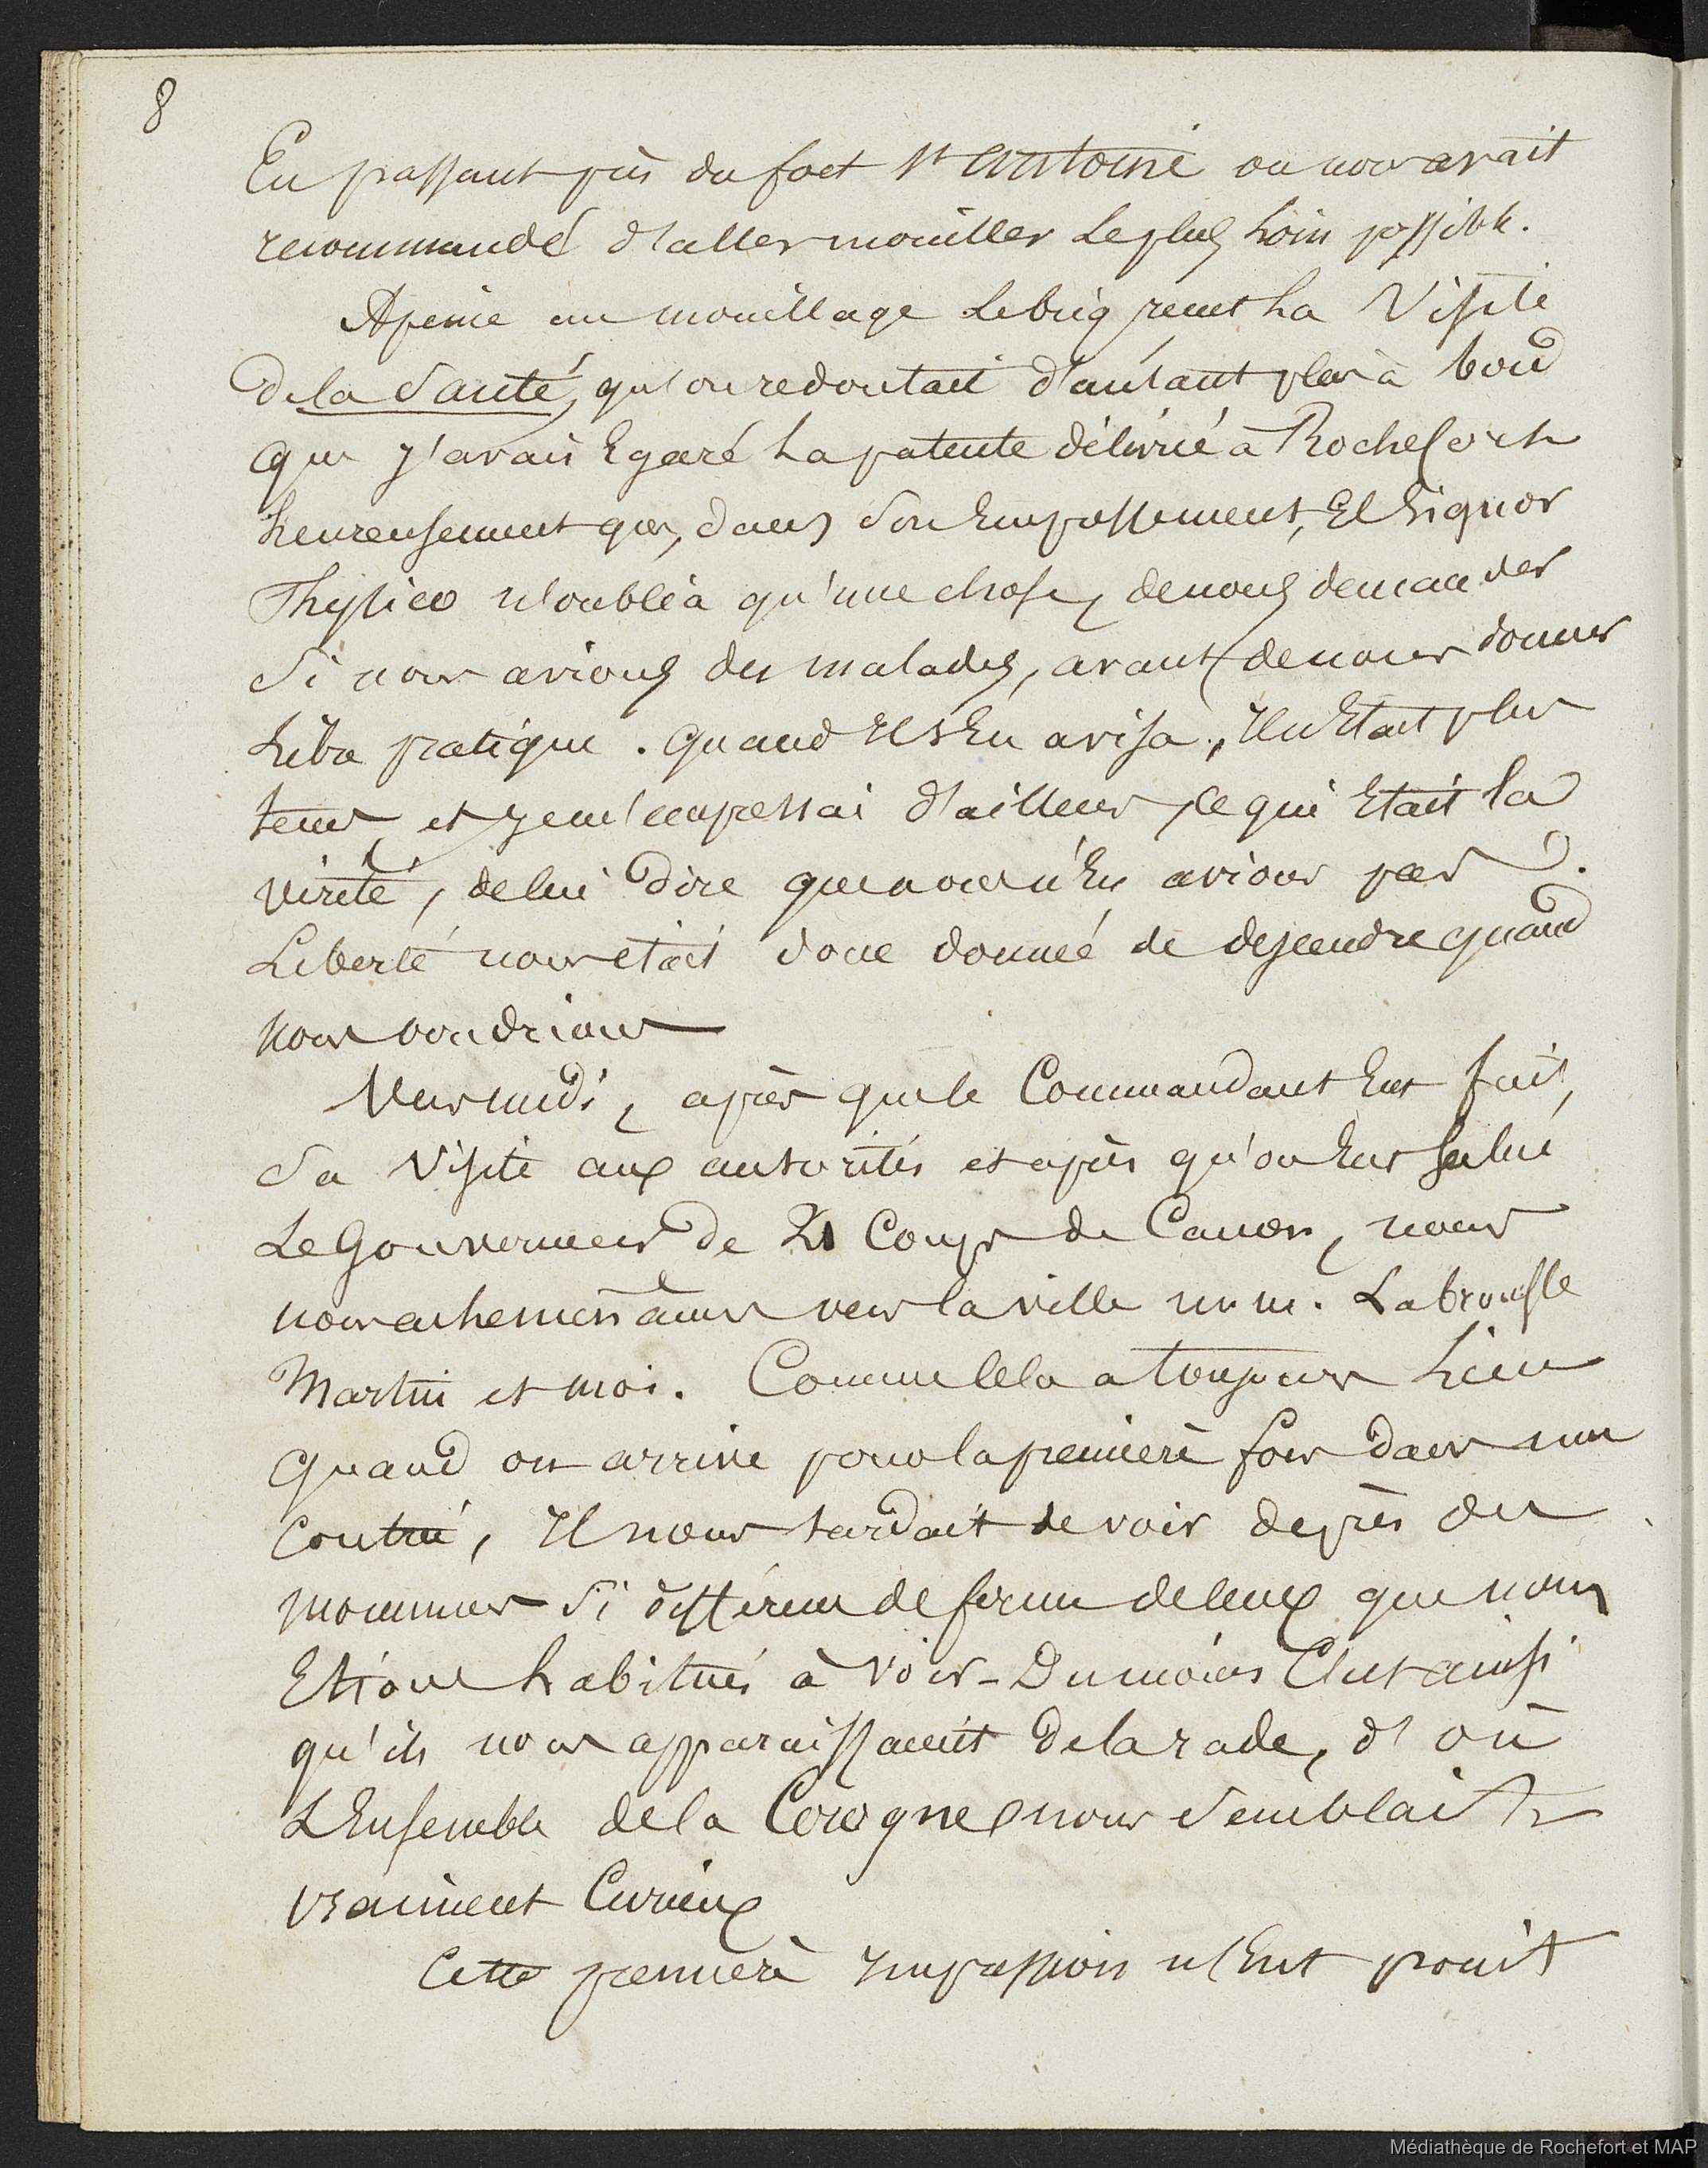 8
En passant près du fort St Antoine on nous avait
recommandé d'aller mouiller le plus loin possible.
Apeine au mouillage le brig reçut la visite
de la Santé, qu'on redoutait d'autant plus à bord
que j'avais Egaré la patente délivrée à Rochefort
heureusement que, dans son Empressement, El Signor
Physico n'oublia qu'une chose, de nous demander
Si nous avions des malades, avant de nous donner
libre pratique. Quand Il s'En avisa, Il n'Etait plus
tems, et je m'empressai d'ailleurs, ce qui Etait la
vérité, de lui dire que nous n'En avions pas.
Liberté nous était donc donnée de descendre quand
nous voudrions
Vers midi, après que le Commandant Eut fait,
Sa visite aux autorités et après qu'on Eut salué
Le Gouverneur de 21 Coups de Canon, nous
nous acheminâmes vers la ville m.m. Labrousse
Martin et moi. Comme Cela a toujours lieu
quand on arrive pour la première fois dans une
Contrée, Il nous tardait de voir de près des
 Si différens de forme de Ceux que nous
Etions habitués à voir - Du moins C'est ainsi
qu'ils nous apparaissaient de la rade, d'où
L'Ensemble de la Corogne nous Semblait
vraiment Curieux
Cette première Impression n'Eut point
Médiathèque de Rochefort et MAP